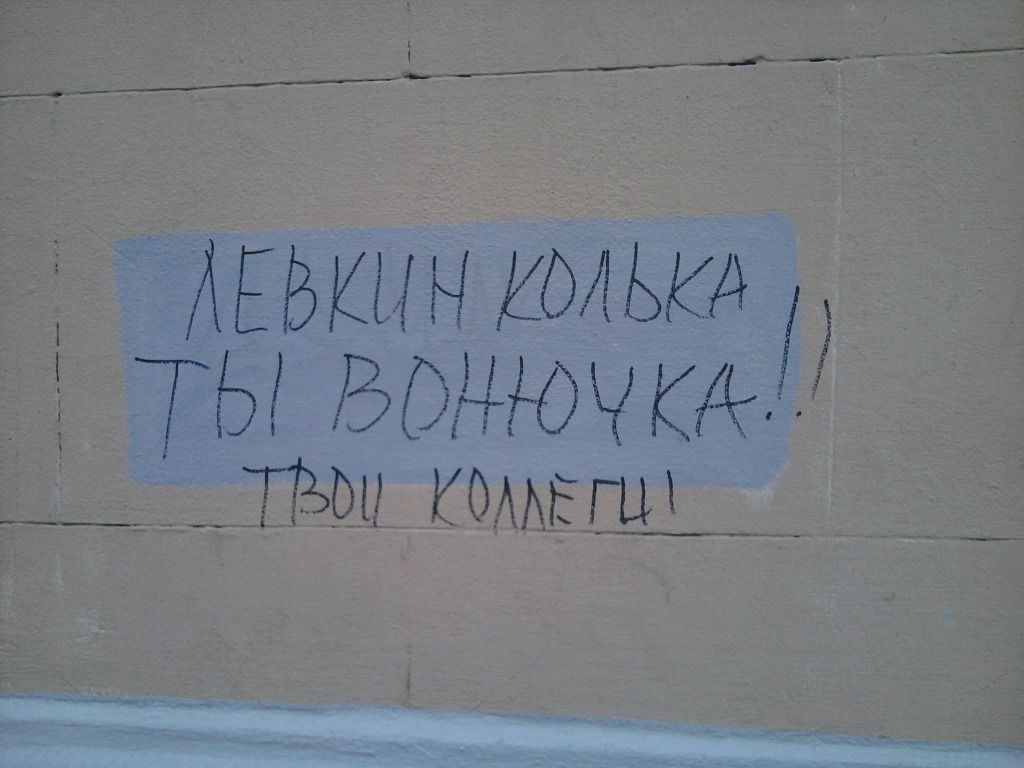 ЛЕВКИН КОЛЬКА
ТЫ ВОНЮЧКА!!
ТВОИ КОЛЛЕГИ!